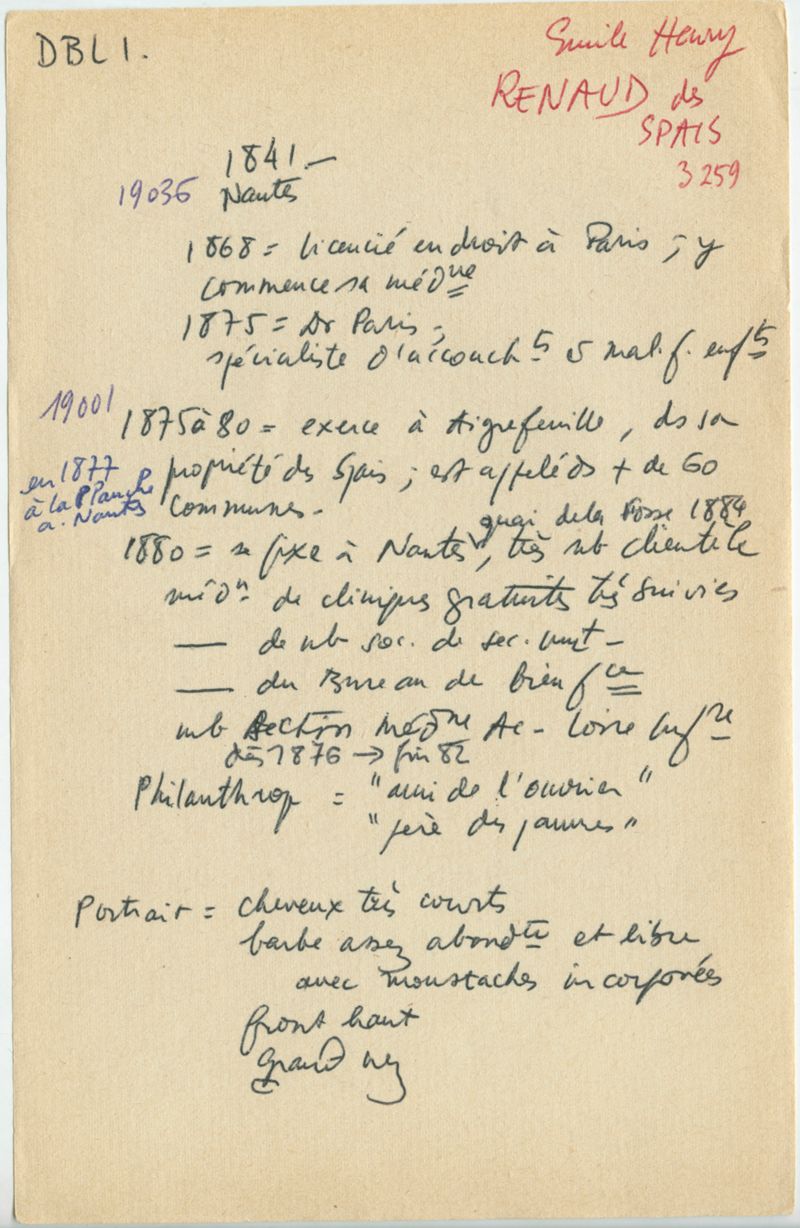 DBL 1.
Emile Henry
RENAUD des
SPAIS
3259
1841 —
19036 Nantes
1868 = licencié en droit à Paris ; y
commence sa méd^ne
1875 = Dr Paris ;
spécialiste d'accouch^ts & mal. f. enf^ts
19001
1875 à 80 = exerce à Aigrefeuille, ds sa
propriété des Spais ; est appelé ds + de 60
communes.
en 1877
à la Planche
a. Nantes
quai de la Fosse 1884
1880 = se fixe à Nantes, très nb clientèle
méd^n de cliniques gratuites très suivies
— de nb soc. de sec. mut —
— du Bureau de bienf^ce
mb Section méd^ne Ac - Loire Inf^re
dès 1876 → fin 82
Philanthrop = "ami de l'ouvrier"
"père des pauvres"
Portrait = cheveux très courts
barbe assez abond^te et libre
avec moustaches incorporées
front haut
grand nez